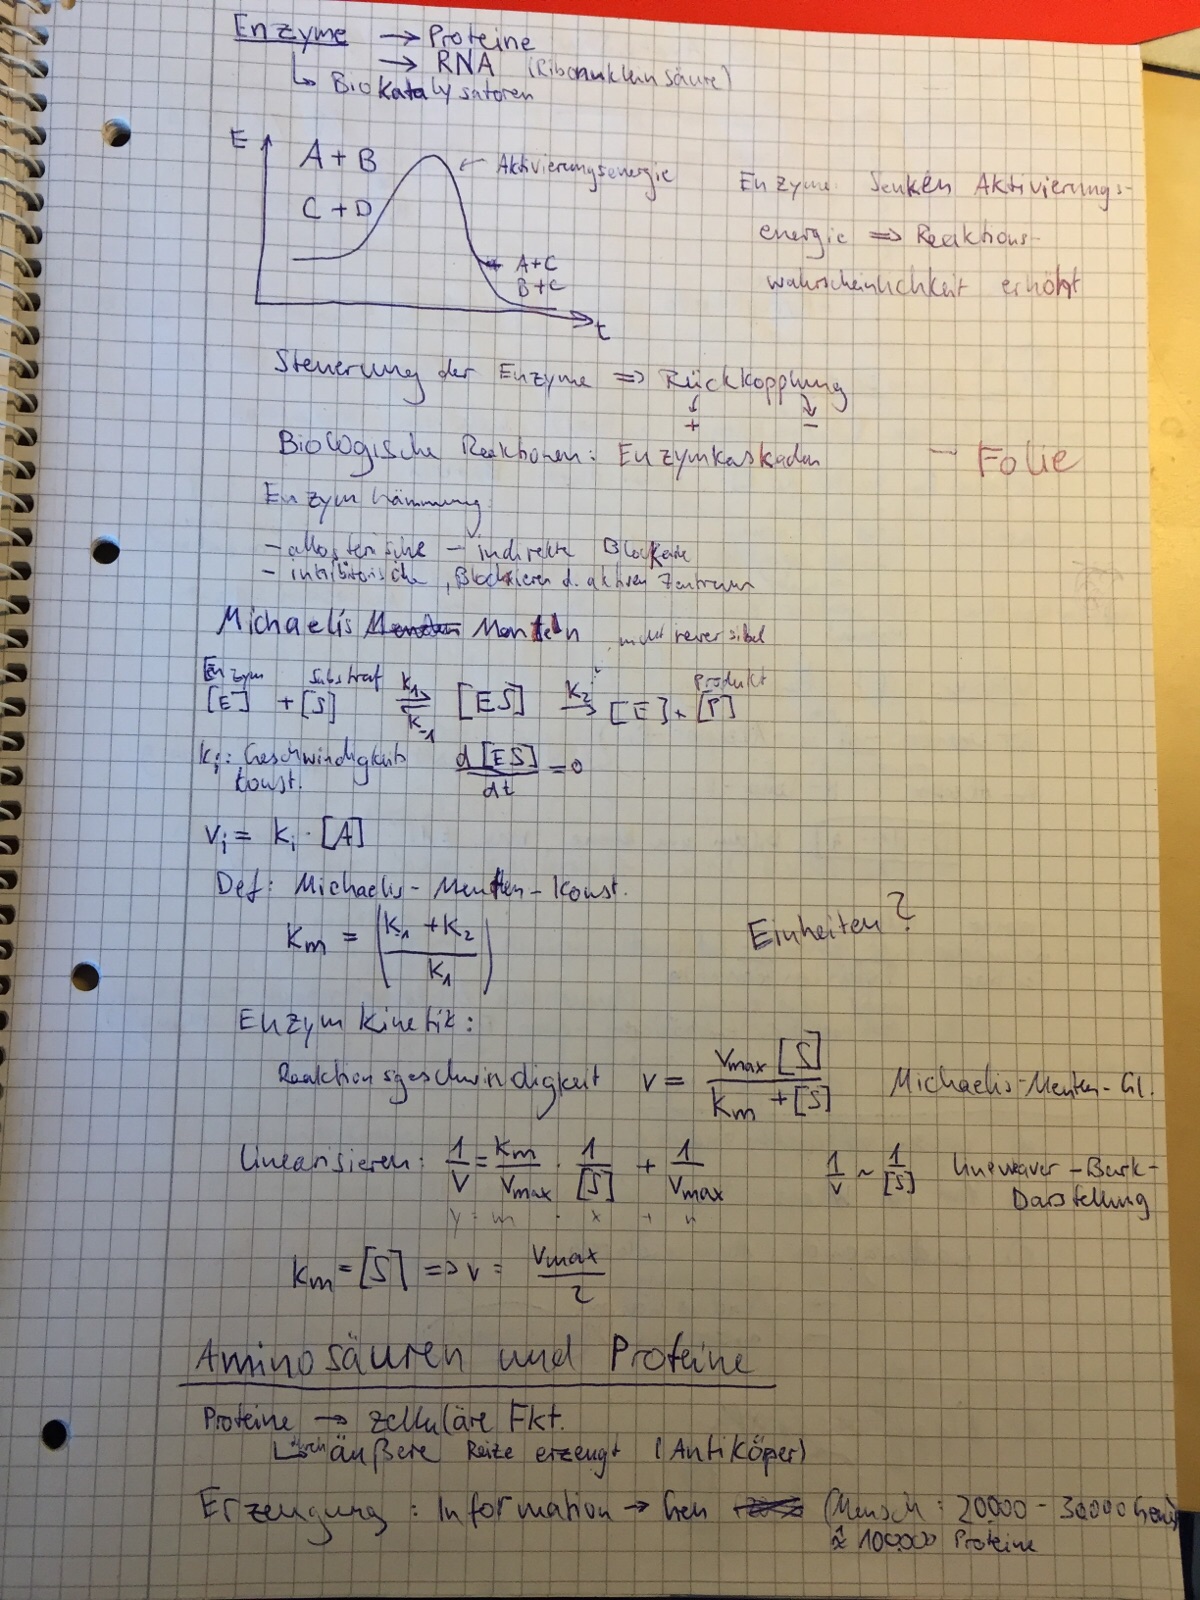 Enzyme → Proteine
→ RNA (Ribonukleinsäure)
↳ Biokatalysatoren
E
A + B
C + D
← Aktivierungsenergie
A+C
B+C
t
Enzyme senken Aktivierungs-
energie => Reaktions-
wahrscheinlichkeit erhöht
Steuerung der Enzyme => Rückkopplung
+ -
Biologische Reaktionen: Enzymkaskaden - Folie
Enzymhämmung
- allosterische - indirekte Blockade
- inhibitorische, Blockieren d. aktiven Zentrums
Michaelis Menten nicht reversibel
Enzym Substrat Produkt
[E] + [S] ⇌ [ES] → [E] + [P]
k₁ k₋₁ k₂
kᵢ: Geschwindigkeits
konst.
d[ES]/dt = 0
vᵢ = kᵢ · [A]
Def: Michaelis-Menten-Konst.
Km = ((k₋₁ + k₂)/k₁)
Einheiten?
Enzymkinetik:
Reaktionsgeschwindigkeit v = Vmax [S] / (Km + [S]) Michaelis-Menten-Gl.
Linearisieren: 1/V = Km/Vmax · 1/[S] + 1/Vmax 1/v ~ 1/[S] Lineweaver-Burk-
Darstellung
y = m · x + n
Km = [S] => v = Vmax/2
Aminosäuren und Proteine
Proteine → zelluläre Fkt.
↳ durch äußere Reize erzeugt (Antiköper)
Erzeugung: Information → Gen (Mensch: 20000 - 30000 Gene)
≙ 100000 Proteine